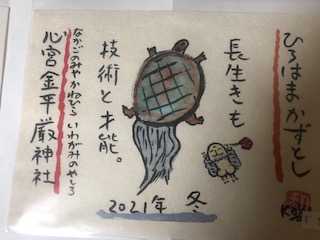 ひろはまかずとし
長生きも
技術と才能。
心宮金平厳神社
なかごのみやかねひらいわがみのやしろ
2021年 冬